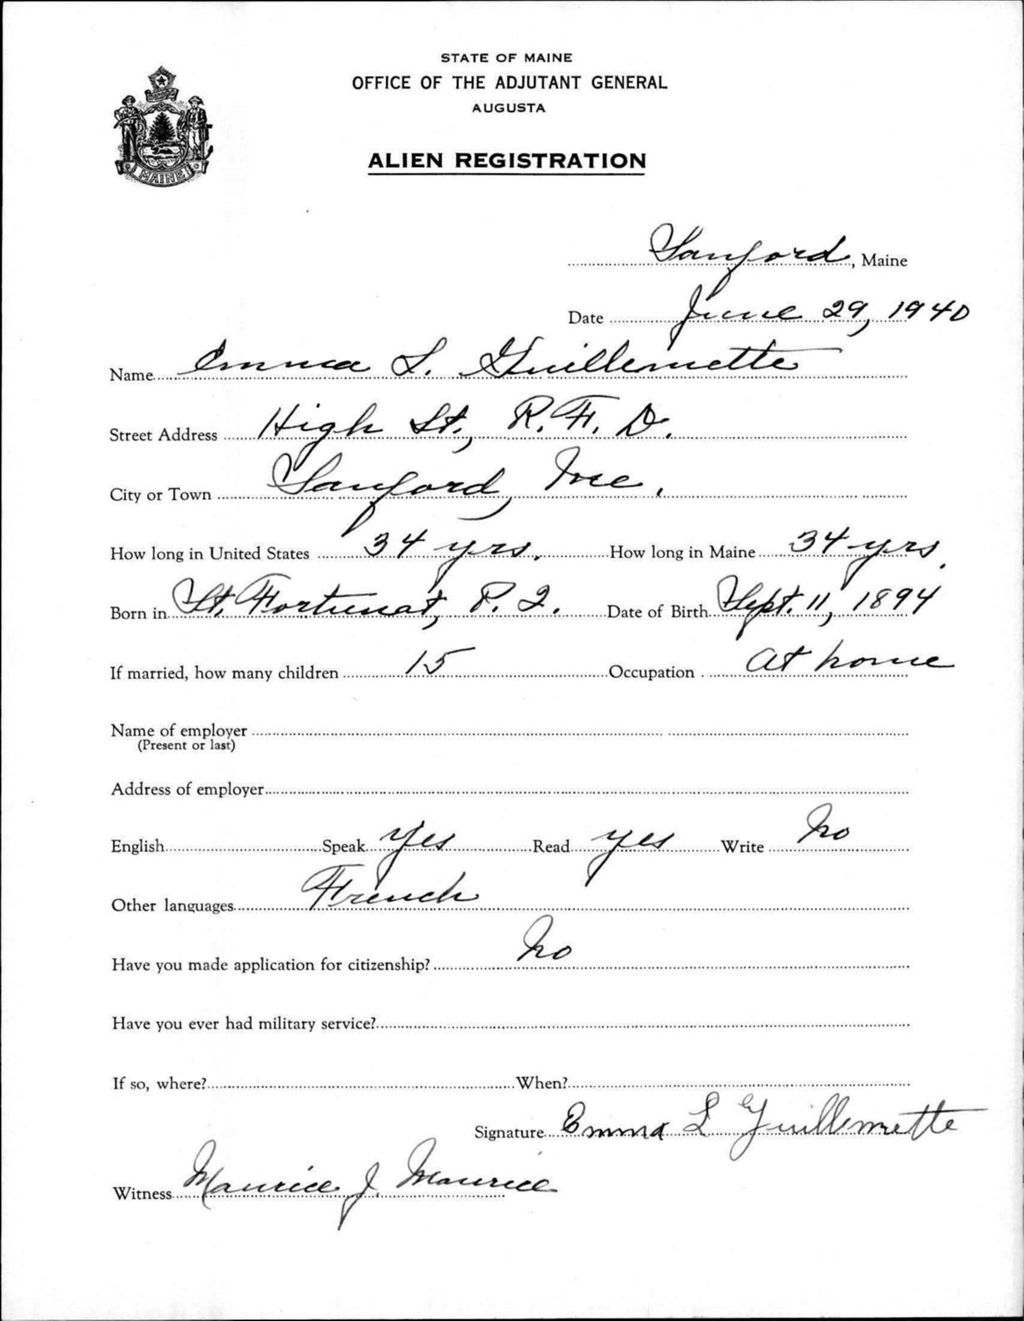 STATE OF MAINE
OFFICE OF THE ADJUTANT GENERAL
AUGUSTA
ALIEN REGISTRATION
MAINE
Sanford, Maine
Date June 29, 1940
Name Emma L. Guillemette
Street Address High St., R.F.D.
City or Town Sanford, Me.
How long in United States 34 yrs. How long in Maine 34 yrs.
Born in St. Fortunat, P.Q. Date of Birth Sept. 11, 1894
If married, how many children 15 Occupation At home
Name of employer
(Present or last)
Address of employer
English Speak Yes Read yes Write No
Other languages French
Have you made application for citizenship? No
Have you ever had military service?
If so, where? When?
Signature Emma L Guillemette
Witness Maurice J. Maurice